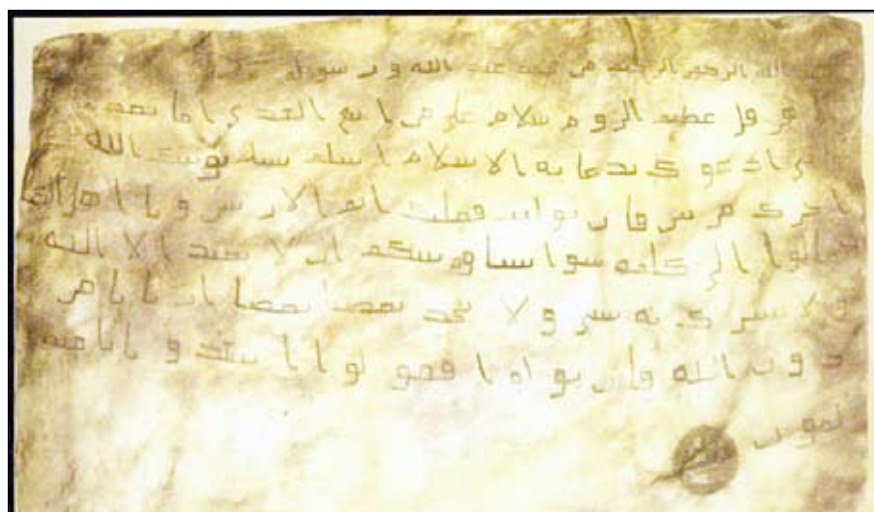 الله الرحمن الرحيم من محمد عبد الله ورسوله الى
هرقل عظيم الروم سلام على من اتبع الهدى اما بعد
ادعوك بدعاية الاسلام اسلم تسلم يوتك الله
اجرك مرتين فان توليت فعليك اثم الاريسين ويا اهل
تعالوا الى كلمة سوا بيننا وبينكم ان لا نعبد الا الله
ولا نشرك به شي ولا يتخذ بعضنا بعضا اربابا من
دون الله فان تولوا فقولوا اشهدوا بانا